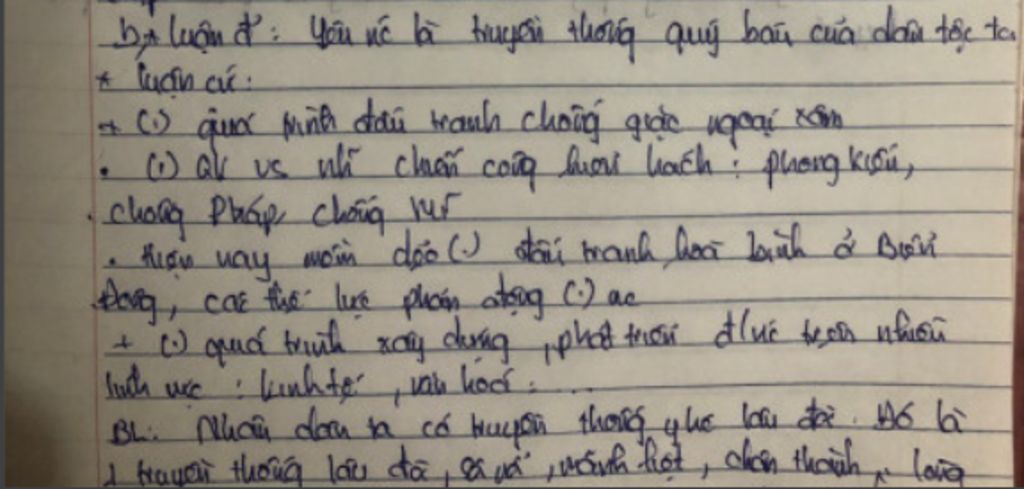 b, * luận đ': Yêu nc là truyền thống quý báu của dân tộc ta
* luận cứ:
+ (.) quá trình đấu tranh chống giặc ngoại xâm
. (.) QK vs nh chiến công hiển hách: phong kiến,
chống Pháp, chống Mĩ
. hiện nay mềm dẻo (.) đấu tranh hoà bình ở Biển
Đông, các thế lực phản động (.) nc
+ (.) quá trình xây dựng, phát triển đ/nc trên nhiều
lĩnh vực: kinh tế, văn hoá: ...
BL: Nhân dân ta có truyền thống yêu lâu đời. Đó là
1 truyền thống lâu đời, mãnh liệt, chân thành, lòng